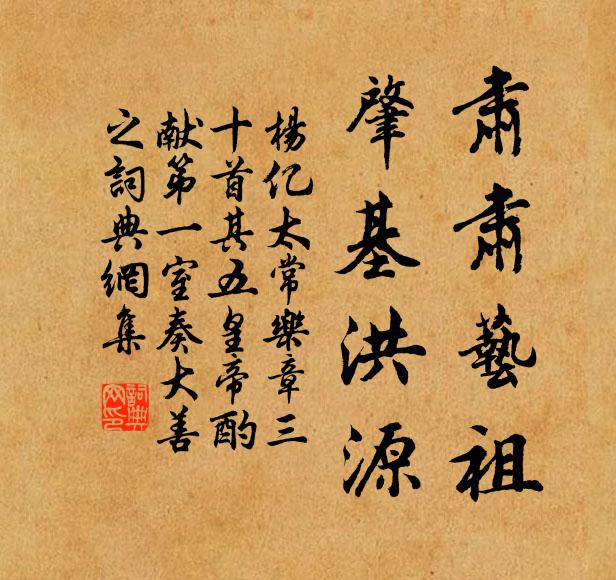 肅肅藝祖
肇基洪源
楊亿太常樂章三
十首其五皇帝酌
献第一室奏大善
之詞典網集
詞典网印